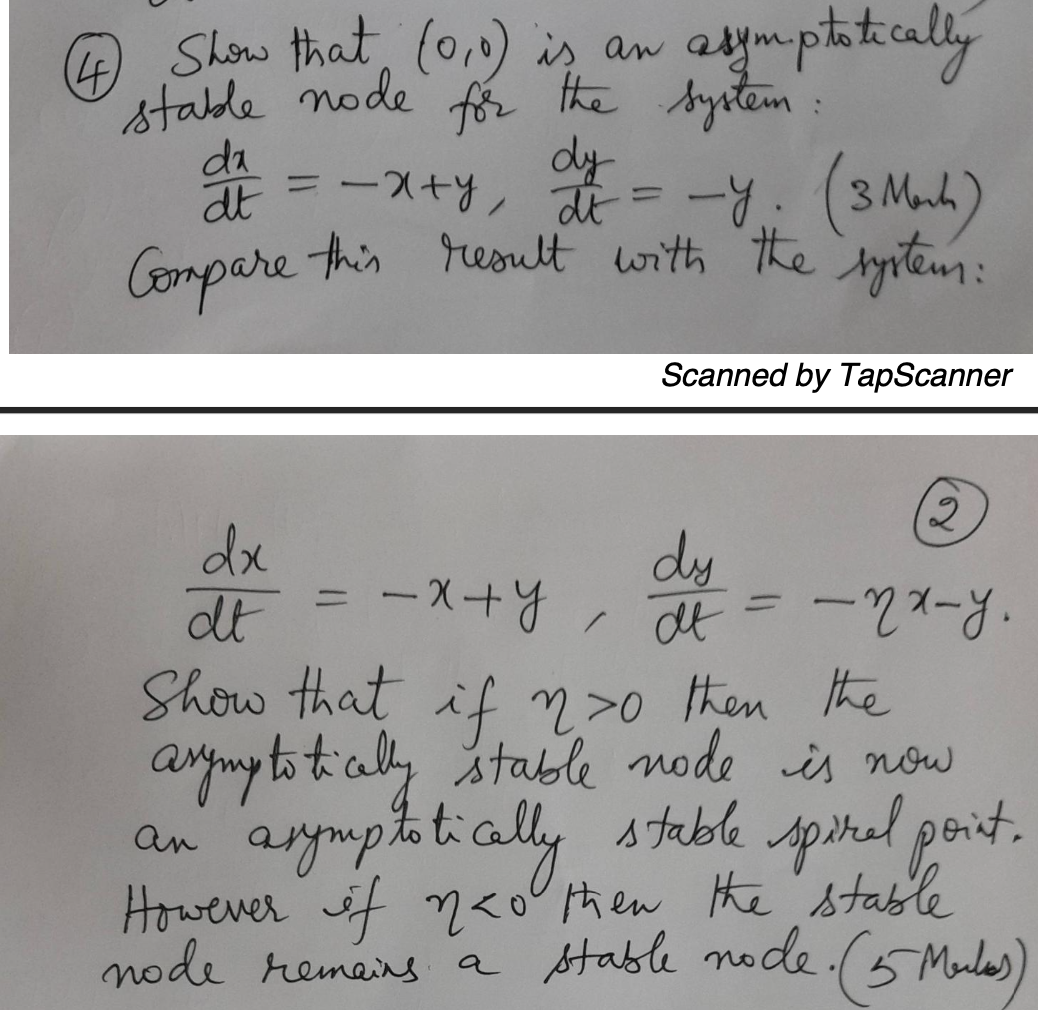 ④ Show that (0,0) is an asymptotically
stable node for the system:
dx/dt = -x+y, dy/dt = -y. (3 Mark)
Compare this result with the system:
Scanned by TapScanner
②
dx/dt = -x+y, dy/dt = -ηx-y.
Show that if η>0 then the
asymptotically stable node is now
an asymptotically stable spiral point.
However if η<0 then the stable
node remains a stable node. (5 Marks)